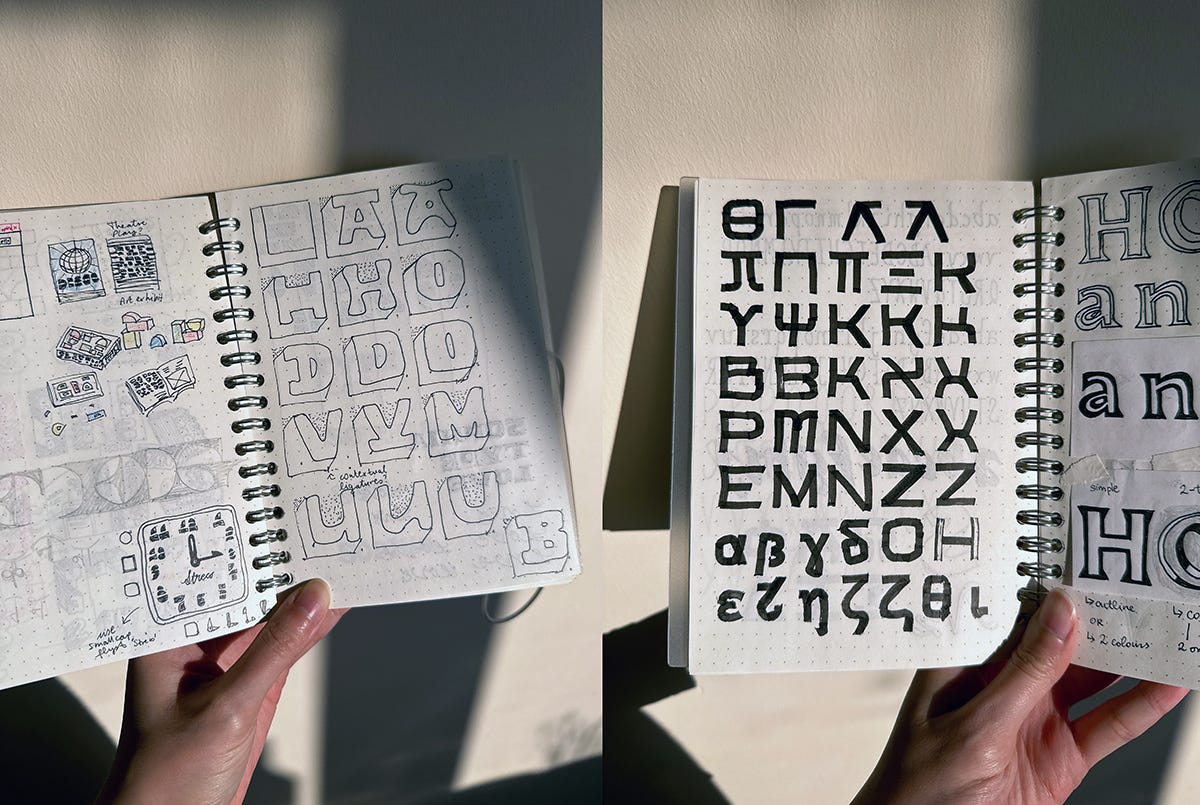 Theatre
Plays?
Art exhibit
Stress
use
small cap
flips
"Stress"
A A
H H O
D D O
V V M
contextual
ligatures?
U U U
B
Θ Γ Λ Λ
π Π Π Ξ Κ
Υ Ψ Κ Κ Κ
Β Β Κ Χ Χ
Ρ Μ Ν Χ Χ
Ε Μ Ν Ζ Ζ
α β γ δ Ο Η
ε ζ η ζ ζ θ ι
HO
an
an
simple
2-t
HO
↳ outline
OR
↳ 2 colours
↳ co
2 or